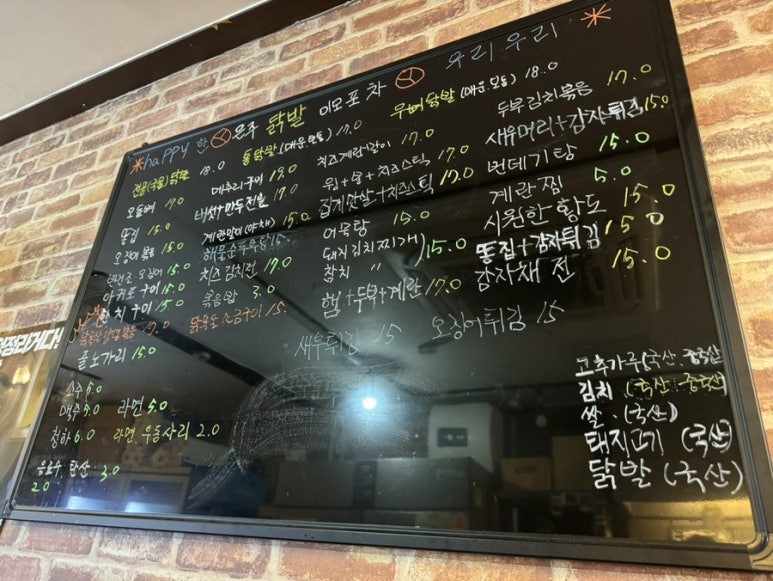 *happy 한 온주 닭발 이모포차 우리 우리 *
전골(국물) 닭발 18.0
통닭발 (매운, 보통) 17.0
무뼈닭발 (매운, 보통) 18.0
오돌뼈 17.0
똥집 15.0
오징어 볶음 15.0
15.0
아귀포 구이 15.0
한치 구이 15.0
17.0
졸노가리 15.0
메추리구이 17.0
버섯+만두전골 17.0
계란말이 (야채) 15.0
15.
치즈김치전 17.0
볶음밥 3.0
닭목살 소금구이 15.
치즈계란말이 17.0
윙+봉+치즈스틱 17.0
집게안살+치즈스틱 17.0
어묵탕 15.0
돼지김치찌개) 15.0
참치 〃
햄+두부+계란 17.0
새우튀김 15
오징어튀김 15
두부김치볶음 17.0
새우머리+감자튀김 15.0
번데기탕 15.0
계란찜 5.0
시원한 황도 15.0
똥집+감자튀김 15.0
감자채전 15.0
소주 5.0
맥주 5.0 라면 5.0
청하 6.0 라면, 우동사리 2.0
음료수, 탄산 3.0
2.0
고추가루 (국산, 중국산)
김치 (국산, 중국산)
쌀. (국산)
돼지고기 (국산)
닭발 (국산)